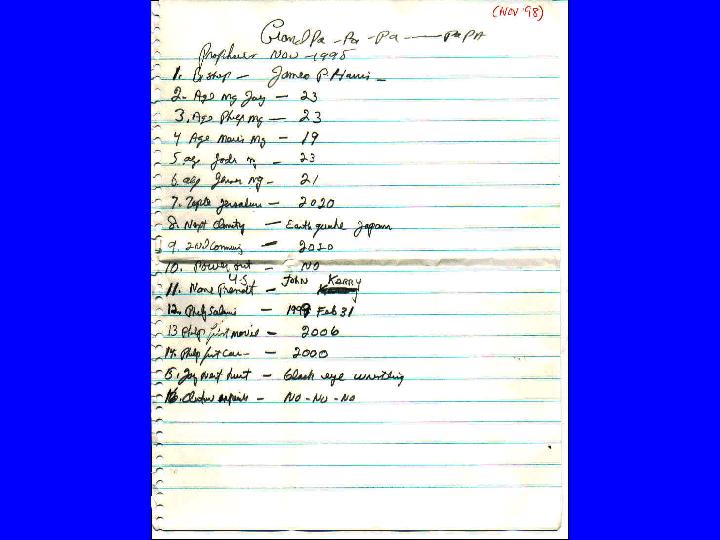 (NOV '98)
GrandPa - Pa - Pa — PAPA
NOV - 1998
1. Bishop — James P Harris —
2. Age mg Jay — 23
3. Age Philip mg — 23
4 Age Maris Mg — 19
5 age Jode m — 23
6. age mg — 21
7. Temple Jerusalem — 2020
8. Next — Earth quake Japan
9. 2nd Comming — 2020
10. Power out — NO
11. Name U.S — JOHN KERRY
12. Philip — 1998 Feb 31
13 Philip first movie — 2006
14. Philip first car — 2000
Jay next hurt — black eye wrestling
16. — NO - NO - NO